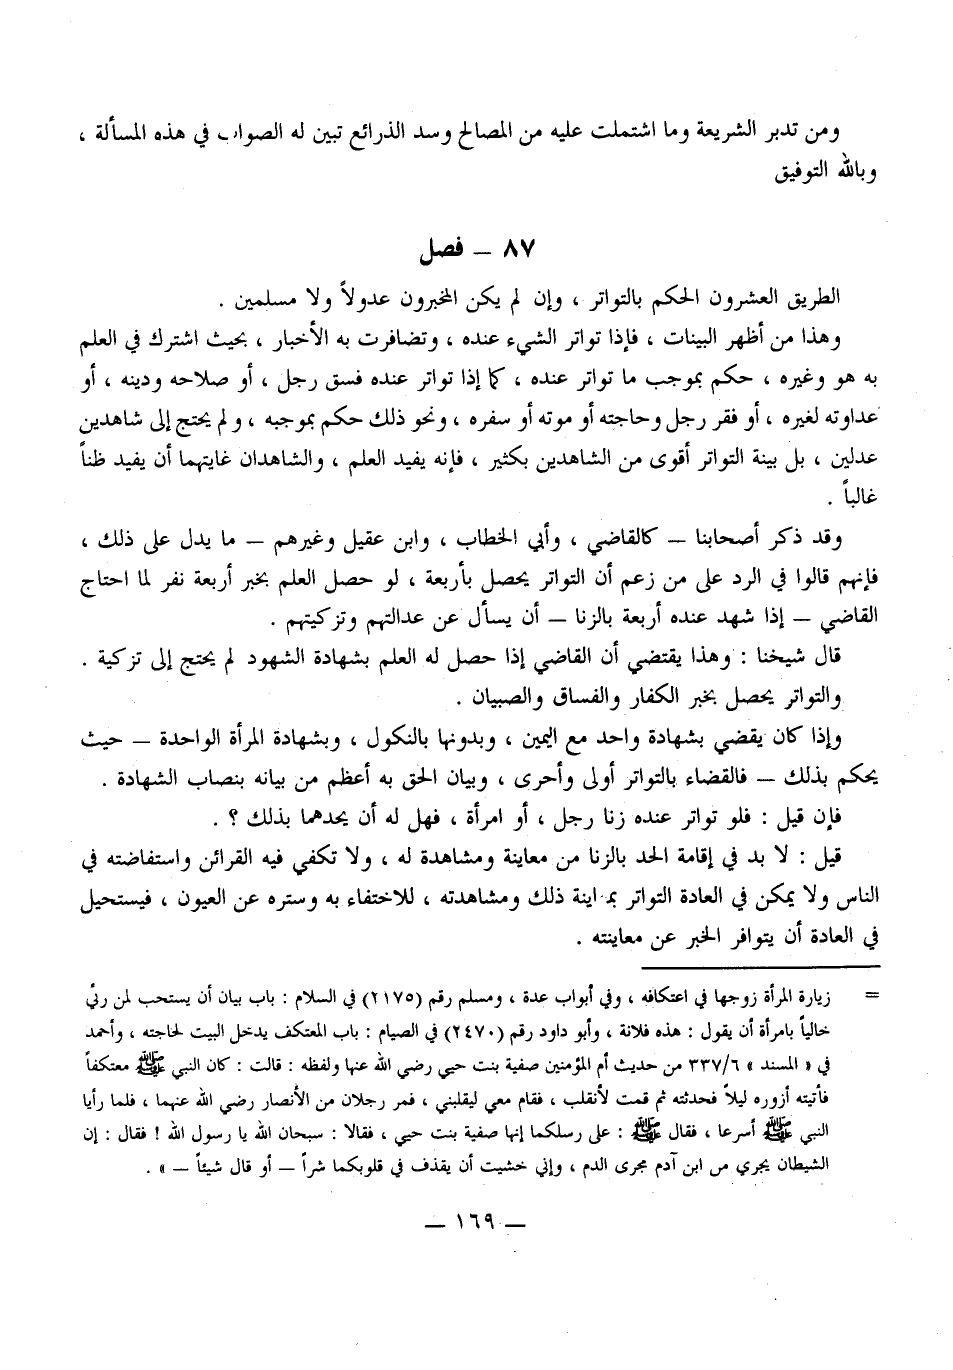 ومن تدبر الشريعة وما اشتملت عليه من المصالح وسد الذرائع تبين له الصواب في هذه المسألة ،
وبالله التوفيق
٨٧ – فصل
الطريق العشرون الحكم بالتواتر ، وإن لم يكن المخبرون عدولاً ولا مسلمين .
وهذا من أظهر البينات ، فإذا تواتر الشيء عنده ، وتضافرت به الأخبار ، بحيث اشترك في العلم
به هو وغيره ، حكم بموجب ما تواتر عنده ، كما إذا تواتر عنده فسق رجل ، أو صلاحه ودينه ، أو
عداوته لغيره ، أو فقر رجل وحاجته أو موته أو سفره ، ونحو ذلك حكم بموجبه ، ولم يحتج إلى شاهدين
عدلين ، بل بينة التواتر أقوى من الشاهدين بكثير ، فإنه يفيد العلم ، والشاهدان غايتهما أن يفيد ظناً
غالباً .
وقد ذكر أصحابنا – كالقاضي ، وأبي الخطاب ، وابن عقيل وغيرهم – ما يدل على ذلك ،
فإنهم قالوا في الرد على من زعم أن التواتر يحصل بأربعة ، لو حصل العلم بخبر أربعة نفر لما احتاج
القاضي – إذا شهد عنده أربعة بالزنا – أن يسأل عن عدالتهم وتزكيتهم .
قال شيخنا : وهذا يقتضي أن القاضي إذا حصل له العلم بشهادة الشهود لم يحتج إلى تزكية .
والتواتر يحصل بخبر الكفار والفساق والصبيان .
وإذا كان يقضي بشهادة واحد مع اليمين ، وبدونها بالنكول ، وبشهادة المرأة الواحدة – حيث
يحكم بذلك – فالقضاء بالتواتر أولى وأحرى ، وبيان الحق به أعظم من بيانه بنصاب الشهادة .
فإن قيل : فلو تواتر عنده زنا رجل ، أو امرأة ، فهل له أن يحدهما بذلك ؟ .
قيل : لا بد في إقامة الحد بالزنا من معاينة ومشاهدة له ، ولا تكفي فيه القرائن واستفاضته في
الناس ولا يمكن في العادة التواتر بمعاينة ذلك ومشاهدته ، للاختفاء به وستره عن العيون ، فيستحيل
في العادة أن يتوافر الخبر عن معاينته .
= زيارة المرأة زوجها في اعتكافه ، وفي أبواب عدة ، ومسلم رقم (٢١٧٥) في السلام : باب بيان أن يستحب لمن رئي
خالياً بامرأة أن يقول : هذه فلانة ، وأبو داود رقم (٢٤٧٠) في الصيام : باب المعتكف يدخل البيت لحاجته ، وأحمد
في « المسند » ٣٣٧/٦ من حديث أم المؤمنين صفية بنت حيي رضي الله عنها ولفظه : قالت : كان النبي ﷺ معتكفاً
فأتيته أزوره ليلاً فحدثته ثم قمت لأنقلب ، فقام معي ليقلبني ، فمر رجلان من الأنصار رضي الله عنهما ، فلما رأيا
النبي ﷺ أسرعا ، فقال ﷺ : على رسلكما إنها صفية بنت حيي ، فقالا : سبحان الله يا رسول الله ! فقال : إن
الشيطان يجري من ابن آدم مجرى الدم ، وإني خشيت أن يقذف في قلوبكما شراً – أو قال شيئاً – » .
– ١٦٩ –